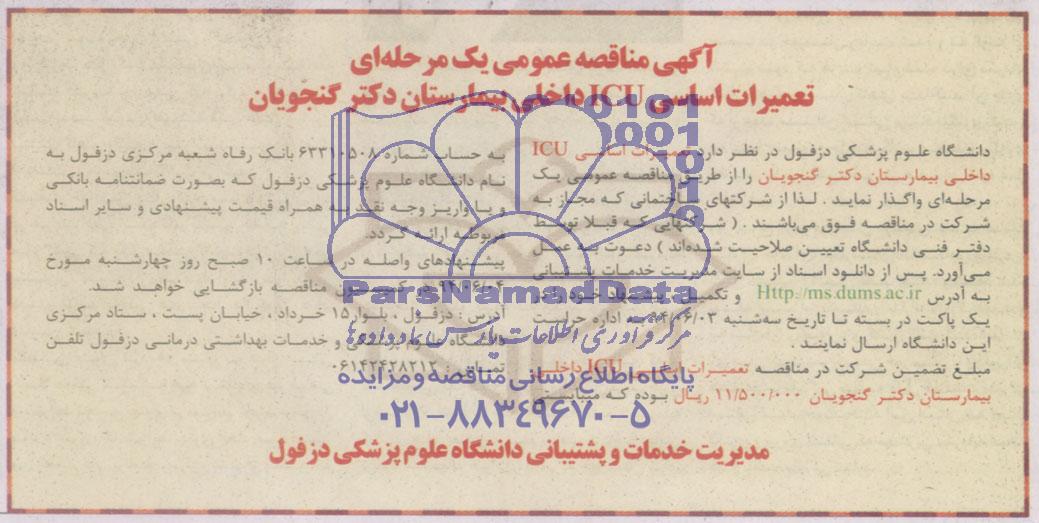 آگهی مناقصه عمومی یک مرحله‌ای
تعمیرات اساسی ICU داخلی بیمارستان دکتر گنجویان
دانشگاه علوم پزشکی دزفول در نظر دارد تعمیرات اساسی ICU
داخلی بیمارستان دکتر گنجویان را از طریق مناقصه عمومی یک
مرحله‌ای واگذار نماید . لذا از شرکتهای ساختمانی که مجاز به
شرکت در مناقصه فوق می‌باشند . ( شرکتهایی که قبلا توسط
دفتر فنی دانشگاه تعیین صلاحیت شده‌اند ) دعوت به عمل
می‌آورد. پس از دانلود اسناد از سایت مدیریت خدمات پشتیبانی
به آدرس Http://ms.dums.ac.ir و تکمیل ، پیشنهاد خود را در
یک پاکت در بسته تا تاریخ سه‌شنبه ۹۴/۰۶/۰۳ به اداره حراست
این دانشگاه ارسال نمایند .
مبلغ تضمین شرکت در مناقصه تعمیرات اساسی ICU داخلی
بیمارستان دکتر گنجویان ۱۱/۵۰۰/۰۰۰ ریال بوده که میبایستی
به حساب شماره ۶۳۳۱۰۵۰۸ بانک رفاه شعبه مرکزی دزفول به
نام دانشگاه علوم پزشکی دزفول که بصورت ضمانتنامه بانکی
و یا واریز وجه نقد به همراه قیمت پیشنهادی و سایر اسناد
مربوطه ارائه گردد.
پیشنهادهای واصله در ساعت ۱۰ صبح روز چهارشنبه مورخ
۹۴/۰۶/۰۴ در کمیسیون مناقصه بازگشایی خواهد شد.
آدرس : دزفول ، بلوار ۱۵ خرداد ، خیابان پست ، ستاد مرکزی
دانشگاه علوم پزشکی و خدمات بهداشتی درمانی دزفول تلفن
تماس : ۰۶۱۴۲۴۲۸۲۱۲
مدیریت خدمات و پشتیبانی دانشگاه علوم پزشکی دزفول
ParsNamadData
مرکز فرآوری اطلاعات پارس نماد داده‌ها
پایگاه اطلاع رسانی مناقصه و مزایده
۰۲۱-۸۸۳۴۹۶۷۰-۵